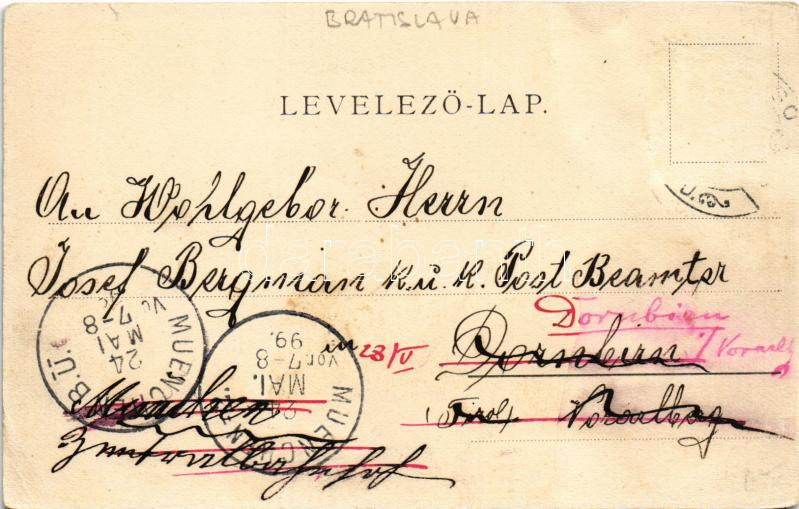 BRATISLAVA
LEVELEZŐ-LAP.
An Wohlgebor. Herrn
Josef Bergman k. u. k. Post Beamter
Dornbirn
in 28/V Dornbirn / Vorarlb
Tirol Vorarlberg
München
Zentralbahnhof
MUENCHEN B.Ü.
24 MAI
7-8
MUENCHEN
24 MAI. 99.
Vor 7-8
darabanth